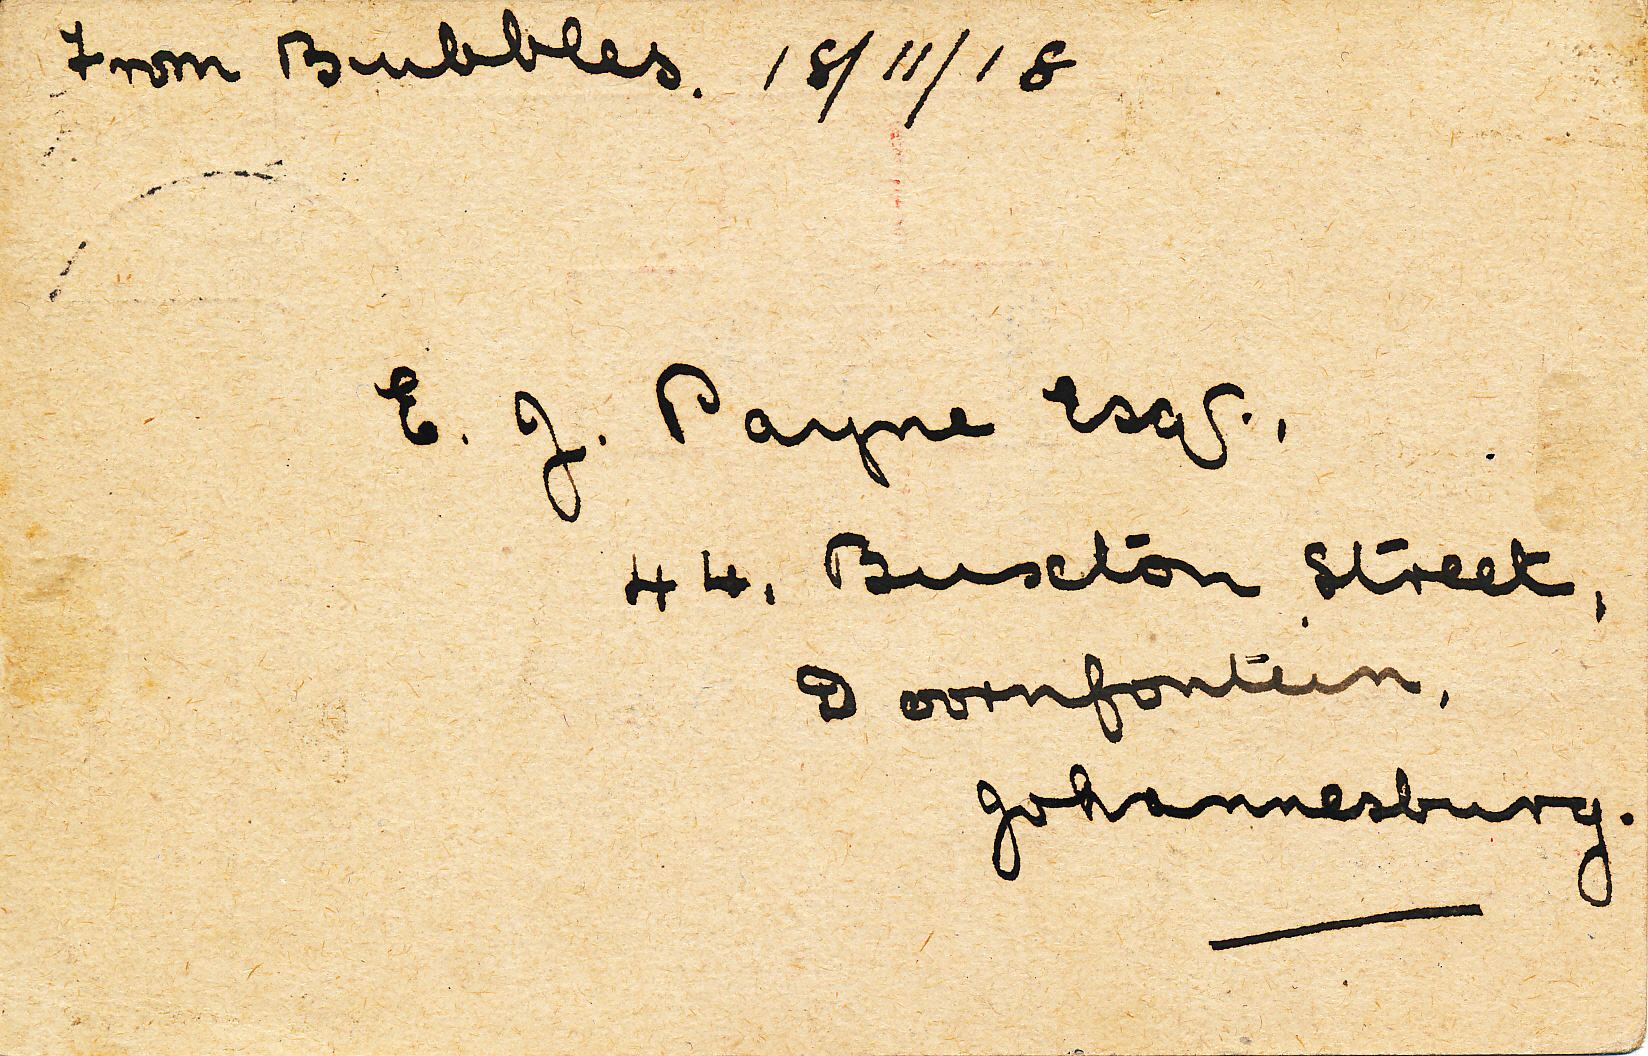 From Bubbles. 18/11/18
E. J. Payne Esq.,
44, Buxton Street,
Doornfontein,
Johannesburg.